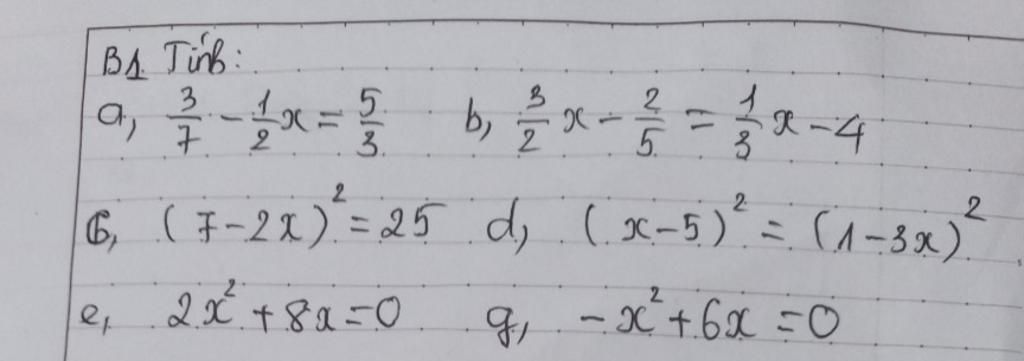 B1 Tính:
a, 3/7 - 1/2 x = 5/3 b, 3/2 x - 2/5 = 1/3 x - 4
c, (7-2x)² = 25 d, (x-5)² = (1-3x)²
e, 2x² + 8x = 0 g, -x² + 6x = 0